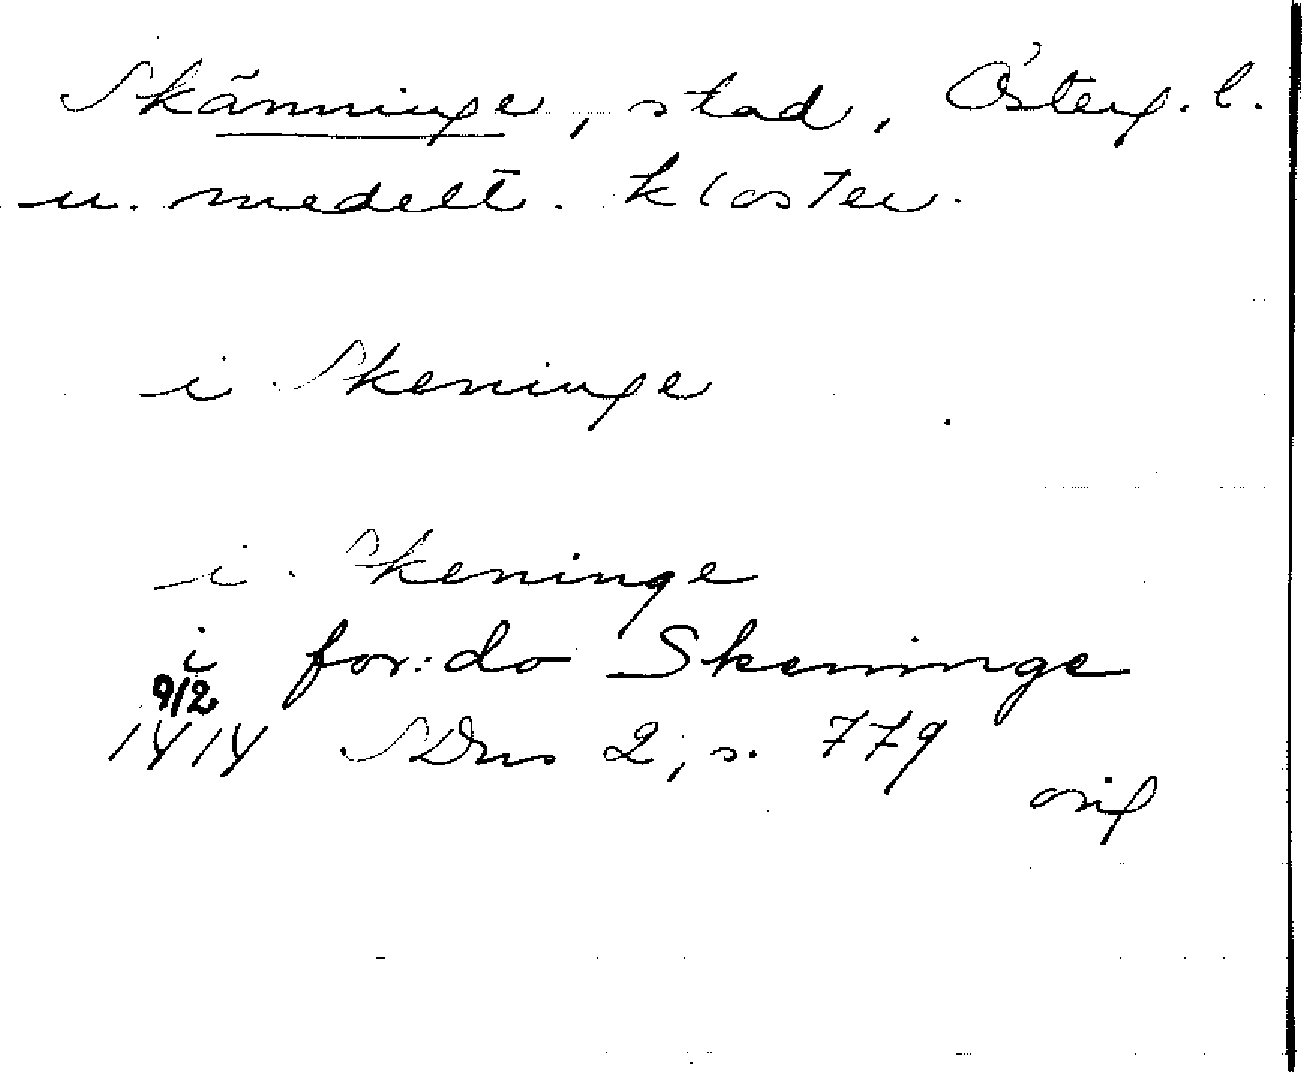 Skänninge, stad, Österg. l.
u. medelt. kloster.
i Skeninge
i Skeninge
i for:do Skeninge
9/2
1414 SDns 2, s. 779
orig